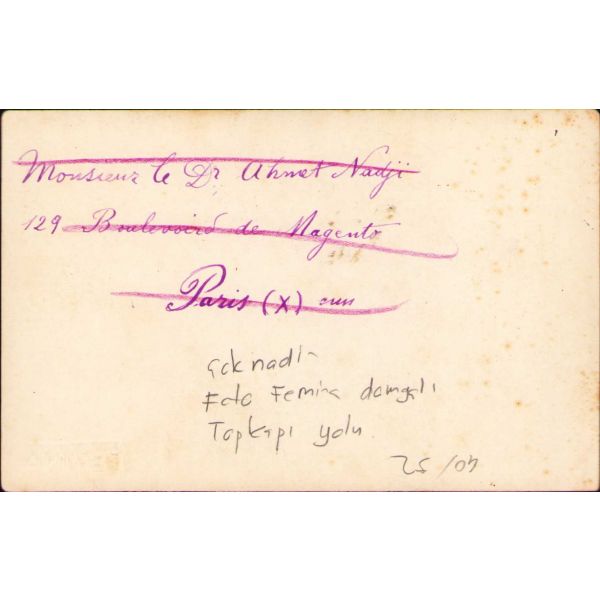 Monsieur le Dr Ahmet Nadji
129 Boulevard de Magenta
Paris (X)
çok nadir
Foto Femina damgalı
Topkapı yolu